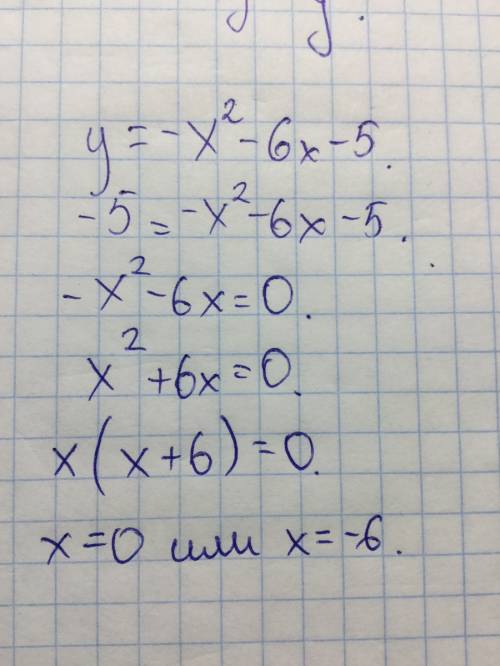 y.
y = -x² - 6x - 5.
-5 = -x² - 6x - 5.
-x² - 6x = 0.
x² + 6x = 0.
x(x + 6) = 0.
x = 0 или x = -6.